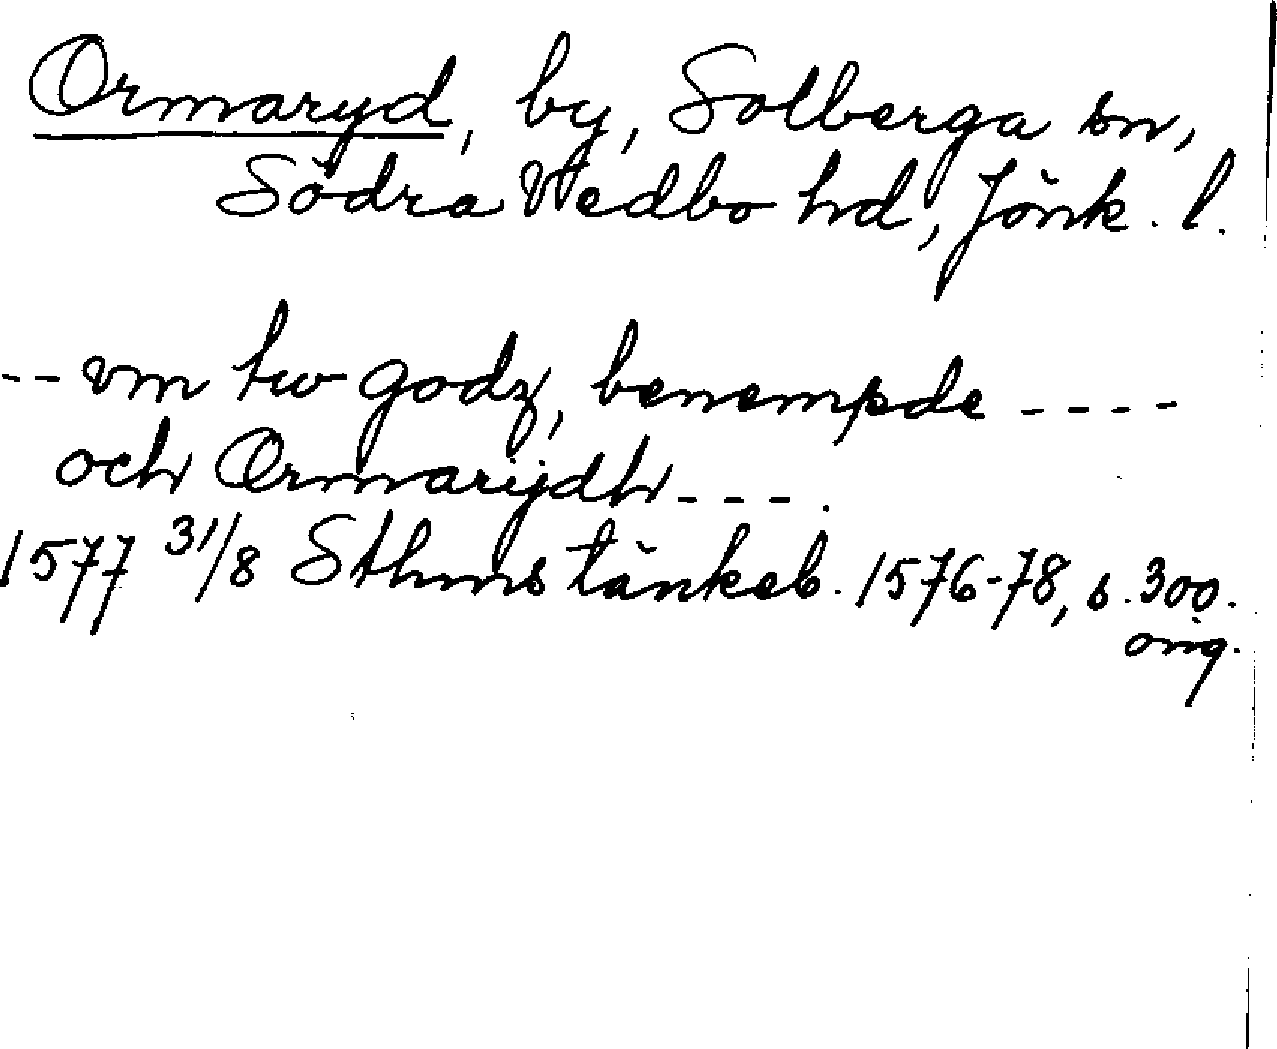 Ormaryd, by, Solberga sn,
Södra Vedbo hd, Jönk. l.
-- vm tw godz, benempde ----
och Ormarijdh ---.
1577 31/8 Sthms tänkeb. 1576-78, s. 300.
orig.